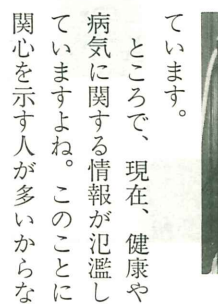 ています。
ところで、現在、健康や
病気に関する情報が氾濫し
ていますよね。このことに
関心を示す人が多いからな